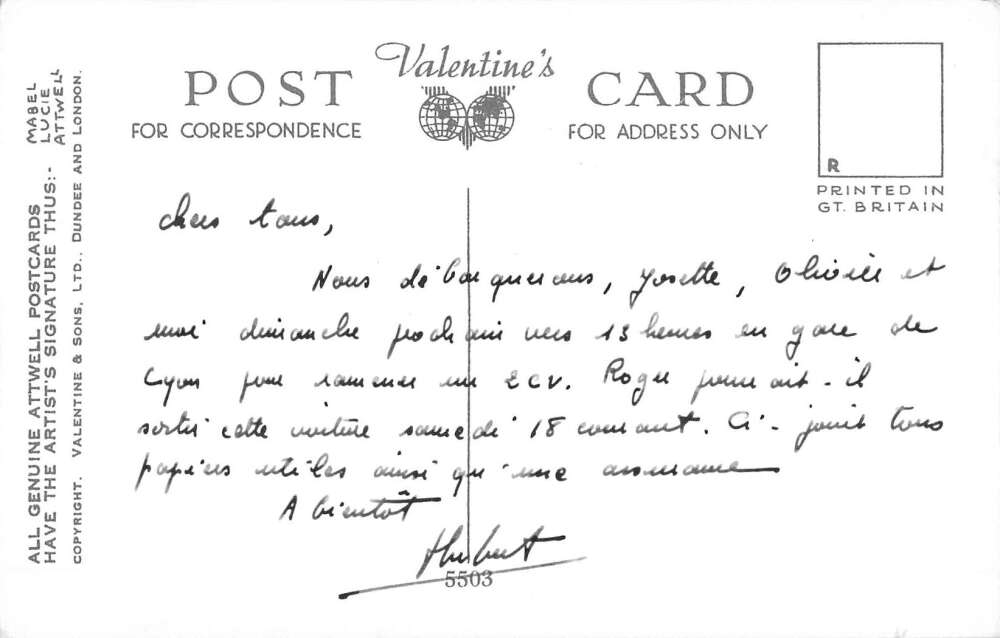 Valentine's
POST CARD
FOR CORRESPONDENCE
FOR ADDRESS ONLY
R
PRINTED IN
GT. BRITAIN
ALL GENUINE ATTWELL POSTCARDS
HAVE THE ARTIST'S SIGNATURE THUS:- MABEL LUCIE ATTWELL
COPYRIGHT. VALENTINE & SONS, LTD., DUNDEE AND LONDON.
Chers tous,
Nous débarquerons, Josette, Olivier et
moi dimanche prochain vers 13 heures en gare de
Lyon pour ramener une 2CV. Roger pourrait-il
sortir cette voiture samedi 18 courant. Ci-joint tous
papiers utiles ainsi qu'une assurance
A bientôt
Hubert
5503